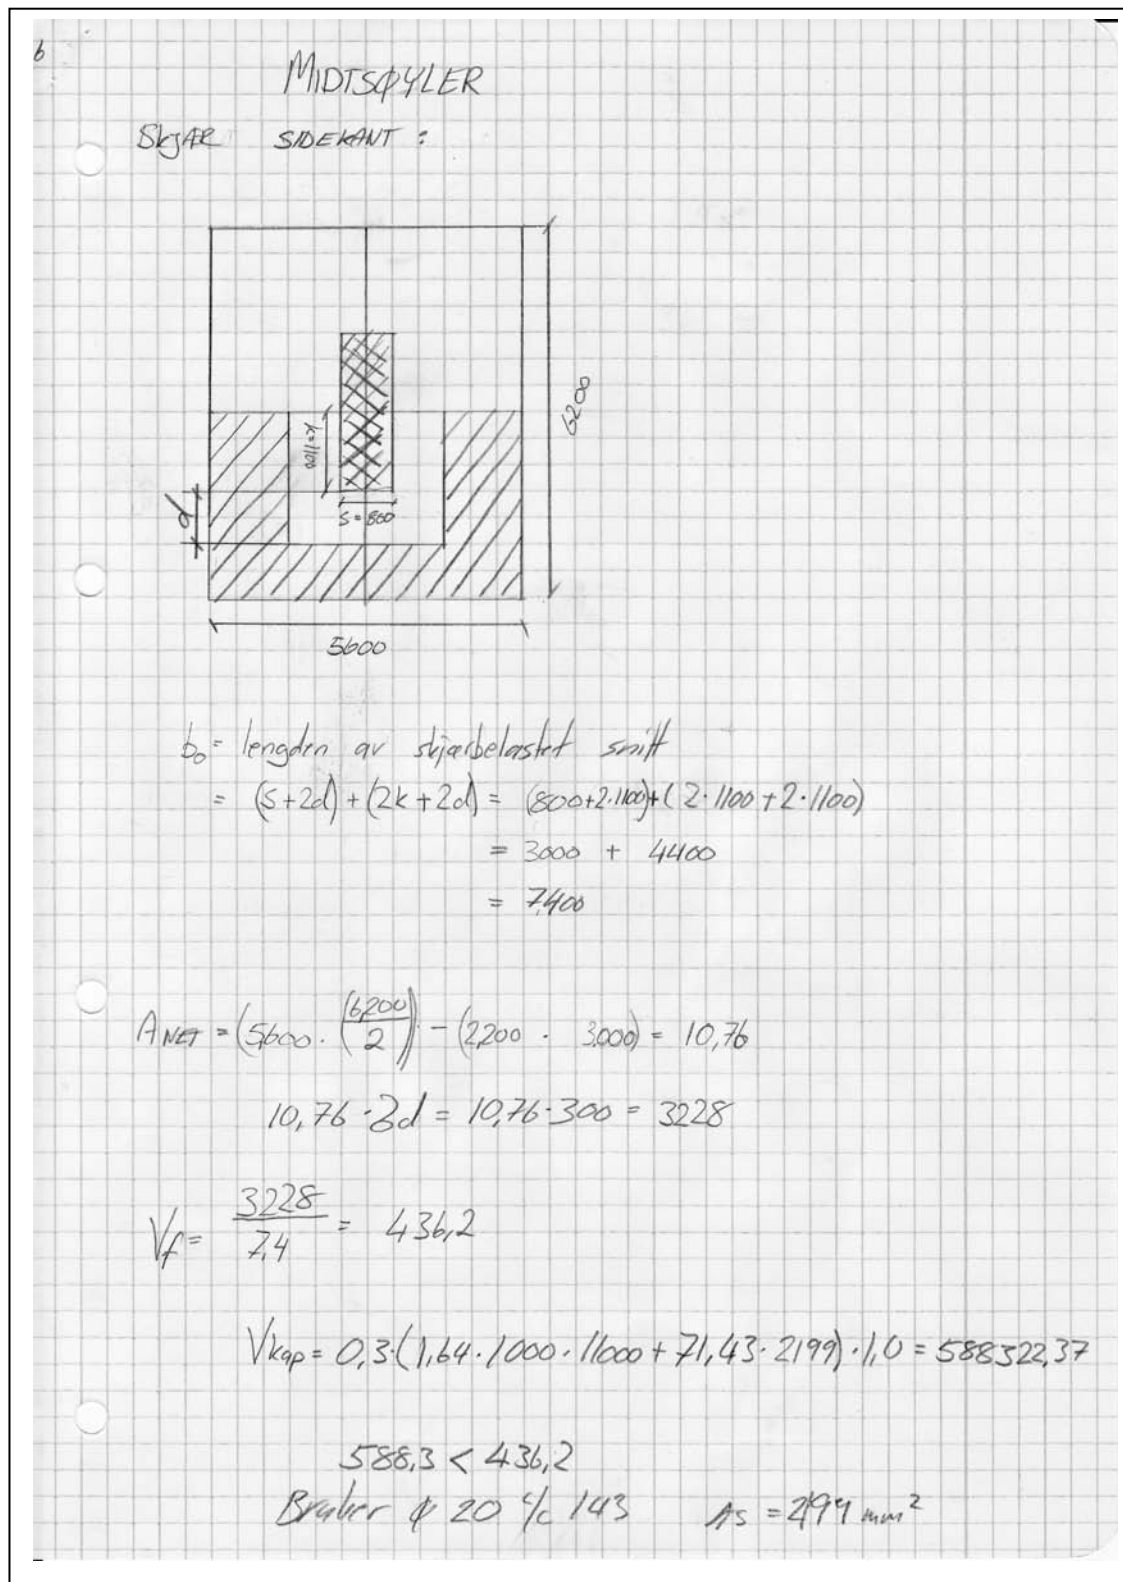 6
MIDTSØYLER
SKJÆR SIDEKANT :
6200
k=1100
d
S=800
5600
b₀ = lengden av skjærbelastet snitt
= (S+2d) + (2k+2d) = (800+2·1100)+(2·1100+2·1100)
= 3000 + 4400
= 7,400
A NET = (5,600 · (6,200/2)) - (2,200 · 3,000) = 10,76
10,76 · 3d = 10,76·300 = 3228
Vf = 3228/7,4 = 436,2
Vkap = 0,3·(1,64·1000·11000+71,43·2199)·1,0 = 588322,37
588,3 < 436,2
Bruker ϕ 20 c/c 143 As = 2199 mm²